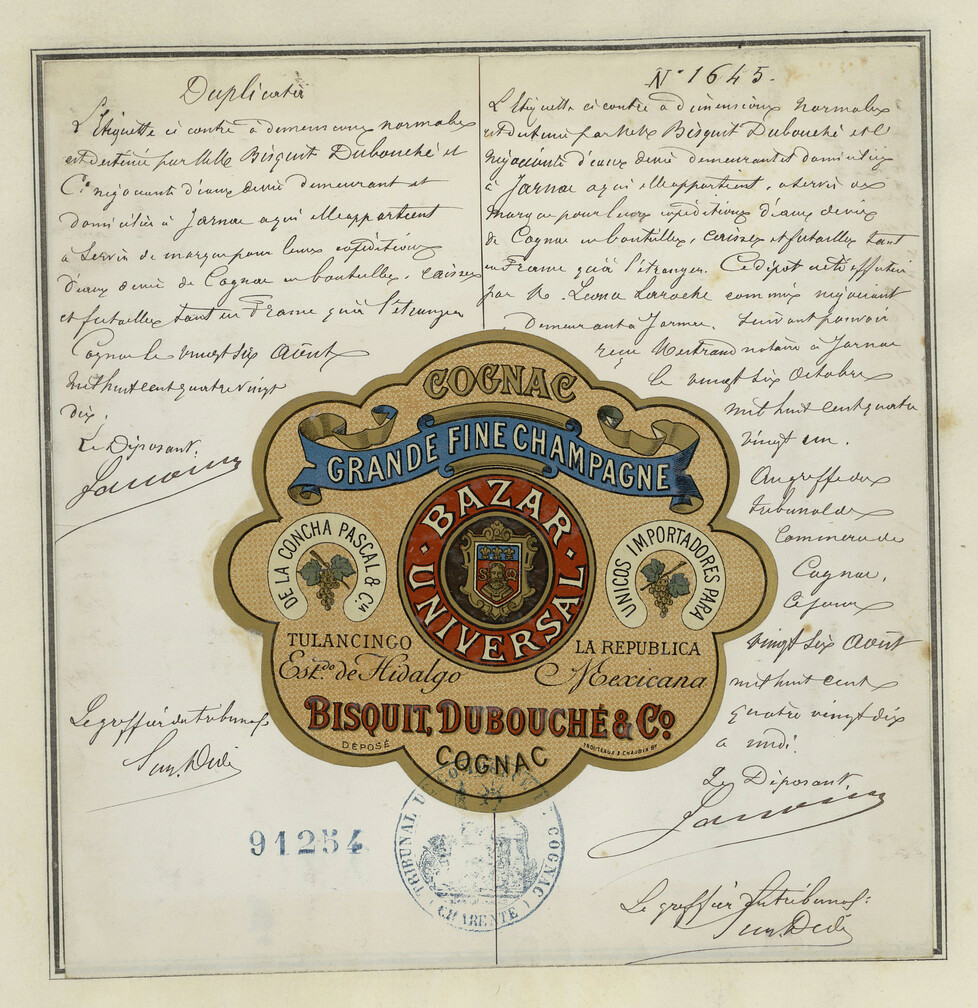 Duplicata
L'Etiquette ci contre à dimensions normales
est destinée par MM. Bisquit Dubouché et
Cie négociants d'eaux de vie demeurant et
domiciliés à Jarnac à qui elle appartient
à servir de marque pour leurs expéditions
d'eaux de vie de Cognac en bouteilles, caisses
et futailles tant en France qu'à l'étranger
Cognac le vingt six Août
mil huit cent quatre vingt
dix.
Le Déposant,
Le greffier du tribunal
N° 1645.
L'Etiquette ci contre à dimensions normales
est destinée par MM. Bisquit Dubouché et Cie
négociants d'eaux de vie demeurant et domiciliés
à Jarnac à qui elle appartient, à servir de
marque pour leurs expéditions d'eaux de vie
de Cognac en bouteilles, caisses et futailles tant
en France qu'à l'étranger. Ce dépôt a été effectué
par M. Laroche commis négociant
demeurant à Jarnac, suivant pouvoir
reçu Bertrand notaire à Jarnac
le vingt six Octobre
mil huit cent quatre
vingt un.
Au greffe du
tribunal de
Commerce de
Cognac,
Ce jour
vingt six Août
mil huit cent
quatre vingt dix
a midi.
Le Déposant,
Le greffier du tribunal:
COGNAC
GRANDE FINE CHAMPAGNE
BAZAR
UNIVERSAL
DE LA CONCHA PASCAL & Cia
UNICOS IMPORTADORES PARA
TULANCINGO
Est.do de Hidalgo
LA REPUBLICA
Mexicana
BISQUIT, DUBOUCHÉ & Co
DÉPOSÉ
COGNAC
91254
TRIBUNAL DE COMMERCE COGNAC
(CHARENTE)